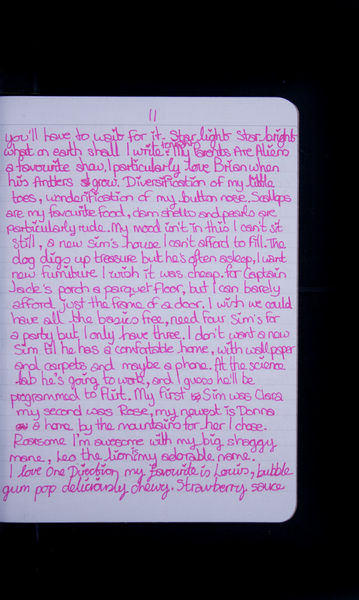 11
you'll have to wait for it. Star light star bright
what on earth shall I write tonight? My Parents Are Aliens
a favourite show, I particularly love Brian when
his Antlers grow. Diversification of my little
toes, wonderification of my button nose. Scallops
are my favourite food, clam shells and pearls are
particularly rude. My mood isn't in this I can't sit
still, a new Sim's house I can't afford to fill. The
dog digs up treasure but he's often asleep, I want
new furniture I wish it was cheap. For Captain
Jack's porch a parquet floor, but I can barely
afford just the frame of a door. I wish we could
have all the basics free, need four Sim's for
a party but I only have three. I don't want a new
Sim til he has a comfortable home, with wallpaper
and carpets and maybe a phone. At the science
lab he's going to work, and I guess he'll be
programmed to flirt. My first Sim was Clara
my second was Rose, my newest is Donna
a home by the mountains for her I chose.
Roarsome I'm awesome with my big shaggy
mane, Leo the lion is my adorable name.
I love One Direction my favourite is Louis, bubble
gum pop deliciously chewy. Strawberry sauce